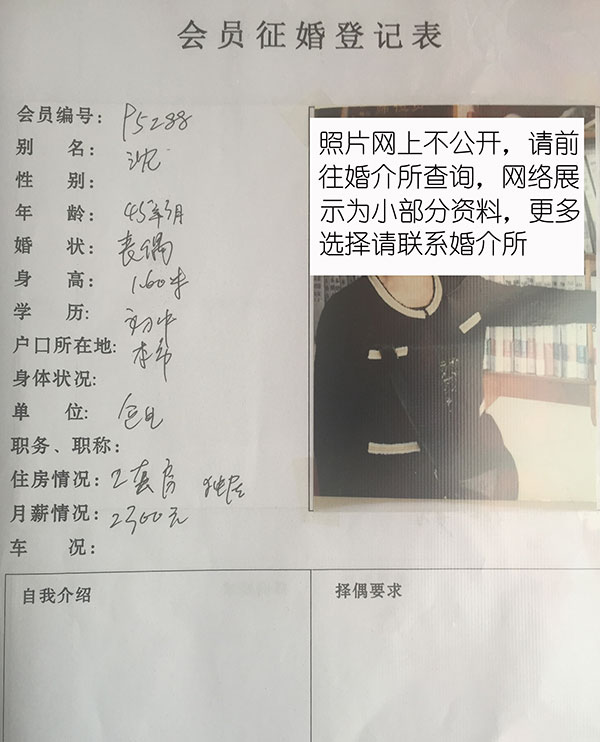 会员征婚登记表
会员编号: P5288
别 名: 沈
性 别:
年 龄: 45年3月
婚 状: 丧偶
身 高: 1.60米
学 历: 初中
户口所在地: 本市
身体状况:
单 位:
职务、职称:
住房情况: 2套房 独住
月薪情况: 2300元
车 况:
照片网上不公开，请前
往婚介所查询，网络展
示为小部分资料，更多
选择请联系婚介所
自我介绍
择偶要求